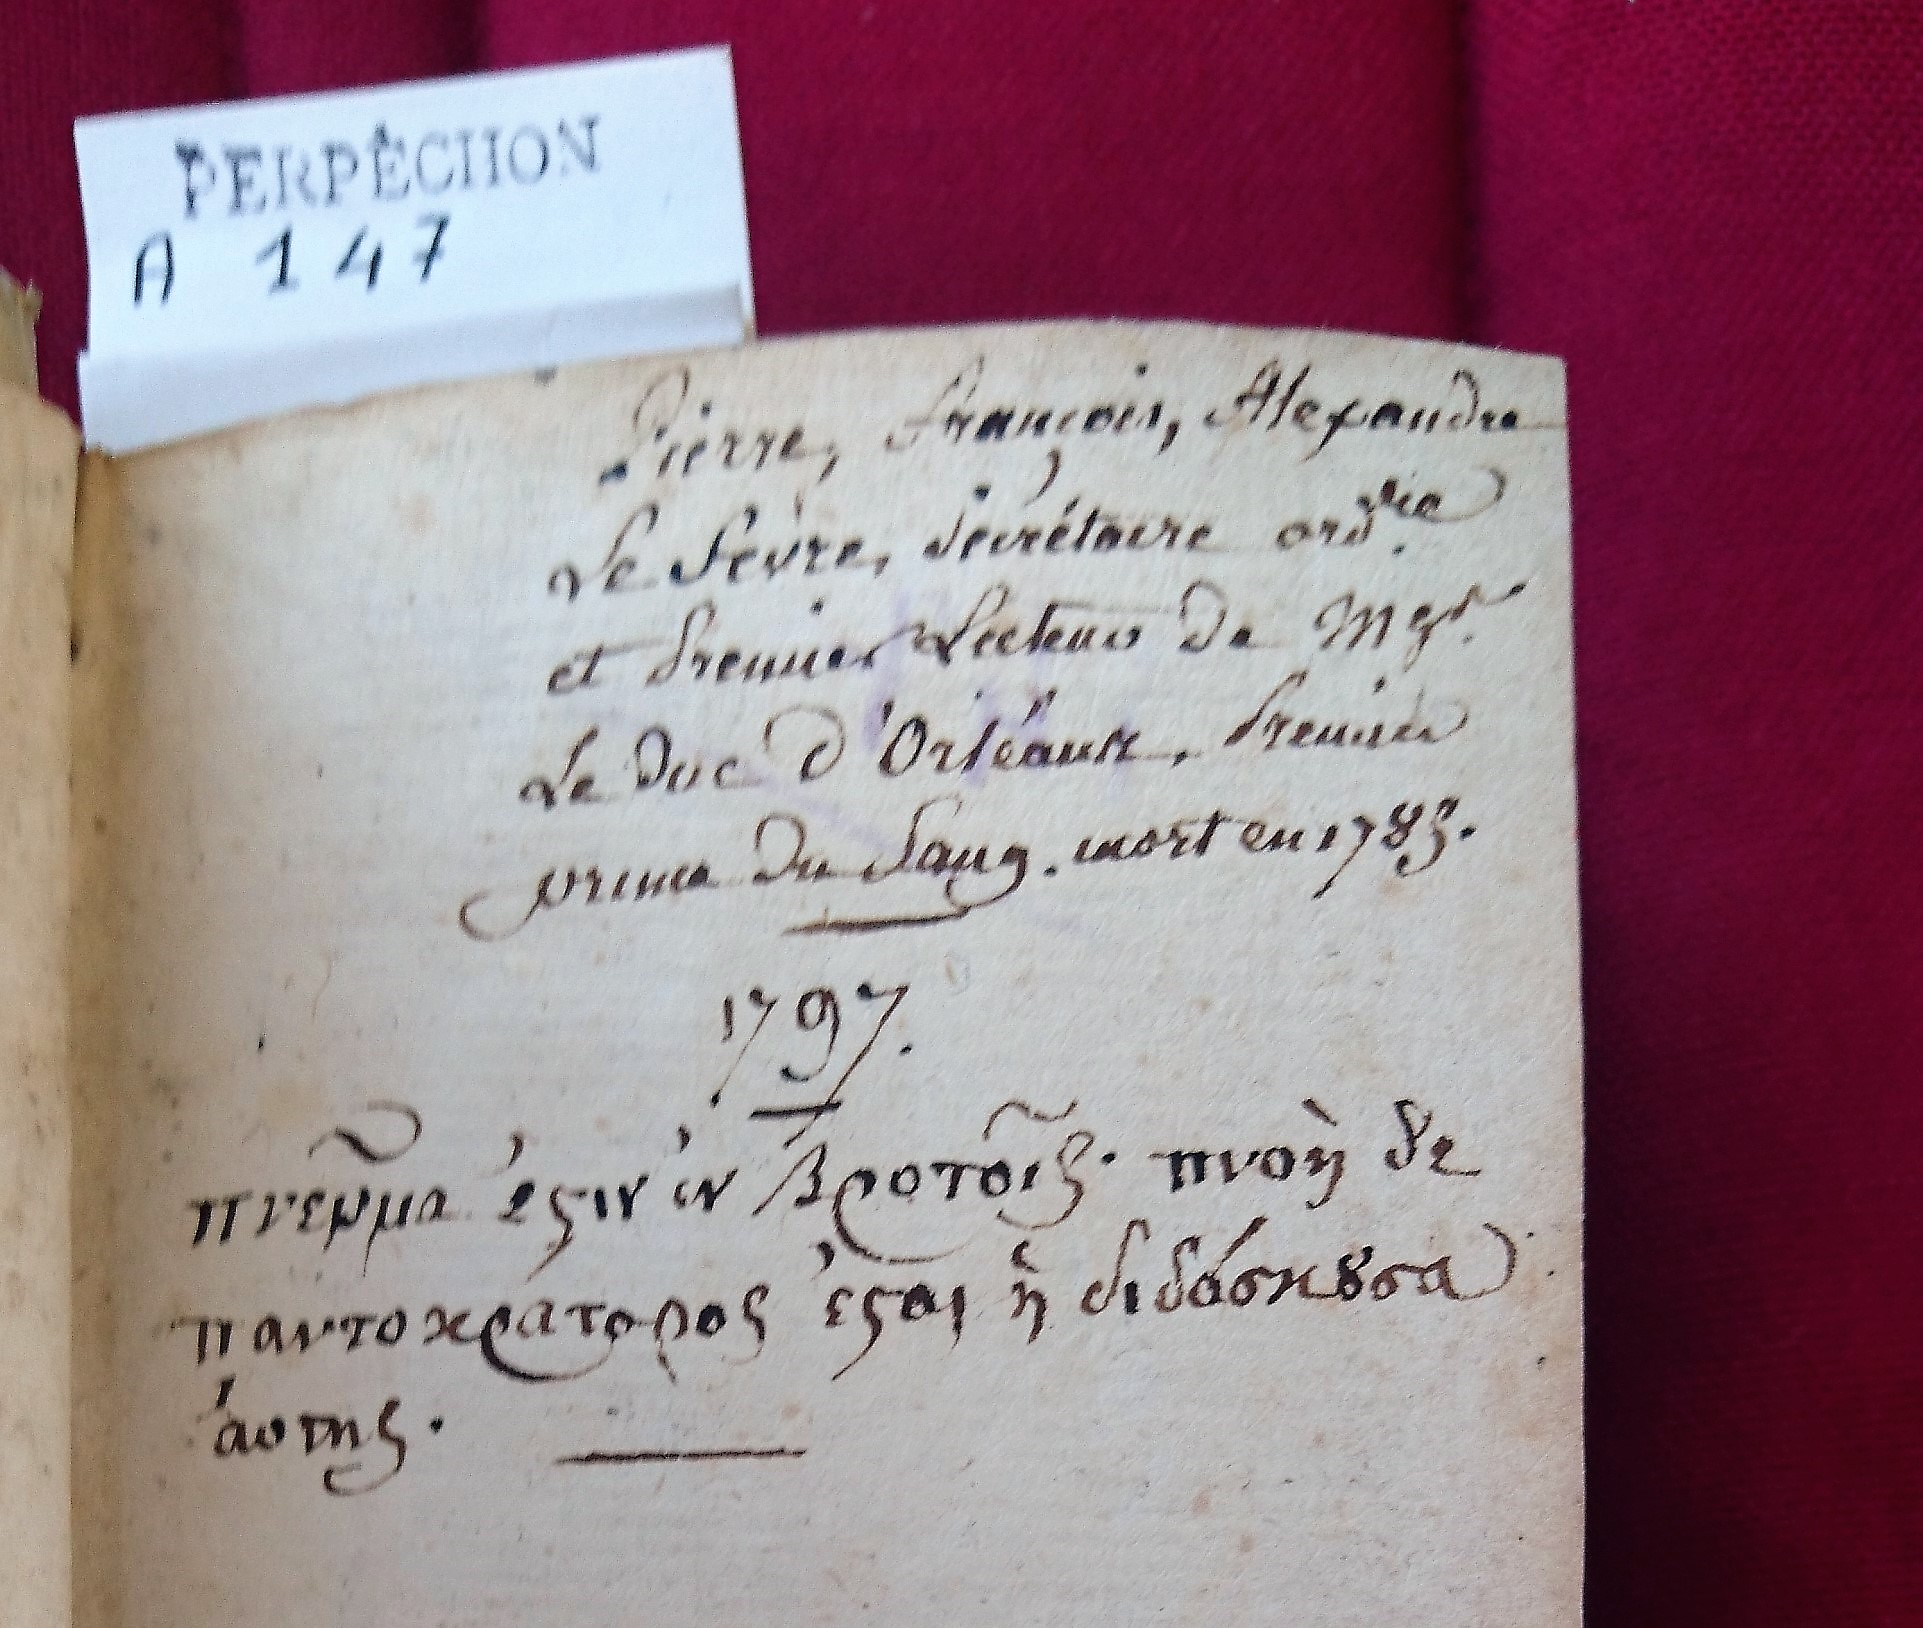 PERPÊCHON
A 147
Pierre, François, Alexandre
Le Fèvre, Secrétaire ord.re
et Premier Lecteur de Mgr.
Le Duc d'Orléans, Premier
prince du Sang. mort en 1785.
1797.
πνεῦμα ἐϛιν ἐν βροτοῖς. πνοὴ δε
παντοκράτορος ἐϛαι ἡ διδάσκȣσα
ἀυτης.